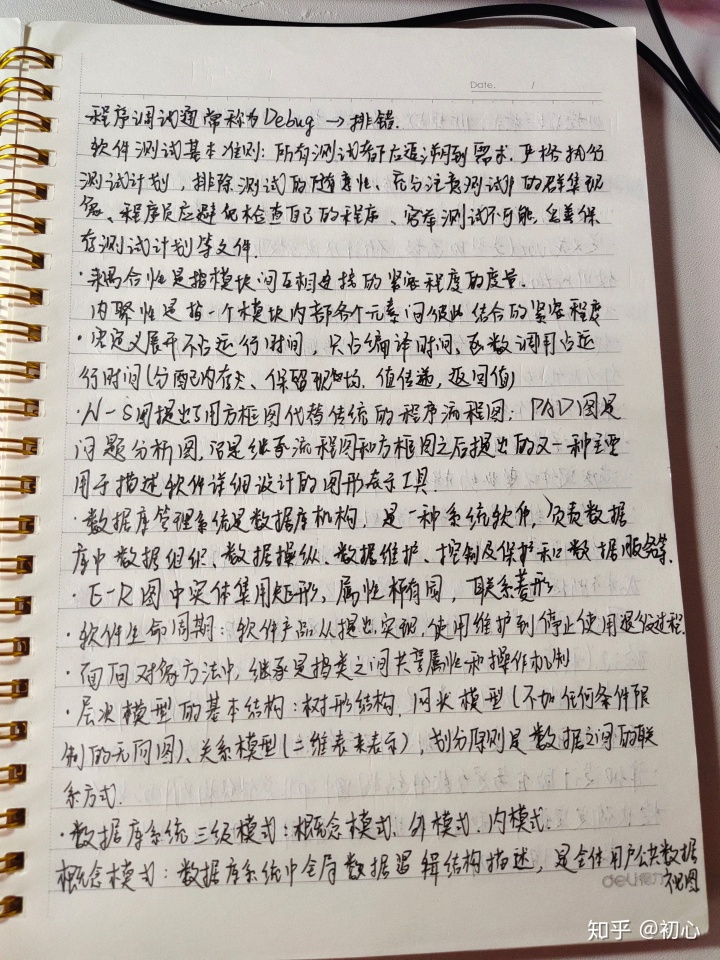 Date. /
程序调试通常称为Debug → 排错.
软件测试基本准则: 所有测试都应追溯到需求. 严格执行
测试计划, 排除测试的随意性、充分注意测试中的群集现
象、程序员应避免检查自己的程序、穷举测试不可能, 妥善保
存测试计划等文件.
·耦合性是指模块间互相连接的紧密程度的度量.
内聚性是指一个模块内部各个元素间彼此结合的紧密程度
·宏定义展开不占运行时间, 只占编译时间、函数调用占运
行时间(分配内存、保留现场、值传递, 返回值)
·N-S图提出了用方框图代替传统的程序流程图; PAD图是
问题分析图, 它是继承流程图和方框图之后提出的又一种主要
用于描述软件详细设计的图形表示工具.
·数据库管理系统是数据库机构, 是一种系统软件, 负责数据
库中数据组织、数据操纵、数据维护、控制及保护和数据服务等.
·E-R图中实体集用矩形, 属性椭圆, 联系菱形
·软件生命周期: 软件产品从提出, 实现, 使用维护到停止使用退役过程.
·面向对象方法中, 继承是指类之间共享属性和操作机制
·层次模型的基本结构: 树形结构, 网状模型(不加任何条件限
制的无向图)、关系模型(二维表来表示), 划分原则是数据之间的联
系方式.
·数据库系统三级模式: 概念模式、外模式、内模式.
概念模式: 数据库系统中全局数据逻辑结构描述, 是全体用户公共数据
视图
deli
知乎 @初心